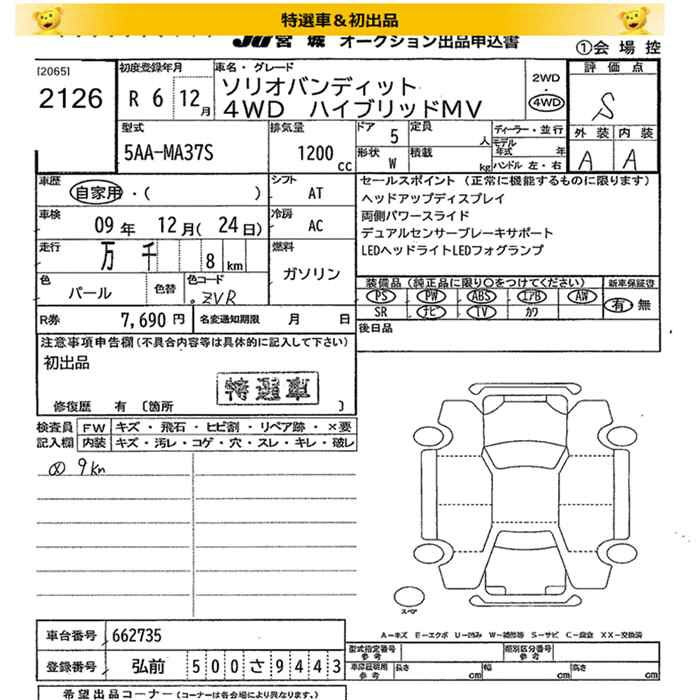 特選車＆初出品
JU 宮城 オークション出品申込書
①会場控
[2065]
2126
初度登録年月
R 6 12月
車名・グレード
ソリオバンディット
4WD ハイブリッドMV
2WD
4WD
評価点
S
外装 内装
A A
型式
5AA-MA37S
排気量
1200 cc
ドア 5
定員 人
形状 W
積載 kg
ディーラー・並行
モデル年式 年
ハンドル 左・右
車歴
自家用・( )
シフト
AT
車検
09年 12月(24日)
冷房
AC
走行
万 千 8 km
燃料
ガソリン
色
パール
色替
色コード
ZVR
セールスポイント (正常に機能するものに限ります)
ヘッドアップディスプレイ
両側パワースライド
デュアルセンサーブレーキサポート
LEDヘッドライトLEDフォグランプ
装備品(純正品に限り○をつけてください)
新車保証書
PS PW ABS エアB AW
有・無
SR ナビ TV カワ
R券 7,690 円
名変通知期限 月 日
後日品
注意事項申告欄(不具合内容等は具体的に記入して下さい)
初出品
特選車
修復歴 有 〔箇所 〕
検査員記入欄
FW キズ・飛石・ヒビ割・リペア跡・×要
内装 キズ・汚レ・コゲ・穴・スレ・キレ・破レ
9km
スペア
A―キズ E―エクボ U―凹み W―補修等 S―サビ C―腐食 XX―交換済
車台番号 662735
登録番号 弘前 500 さ 9443
型式指定番号 参考
類別区分番号 参考
車庫証明用 参考
長さ cm 幅 cm 高さ cm
希望出品コーナー (コーナーは各会場により異なります。)